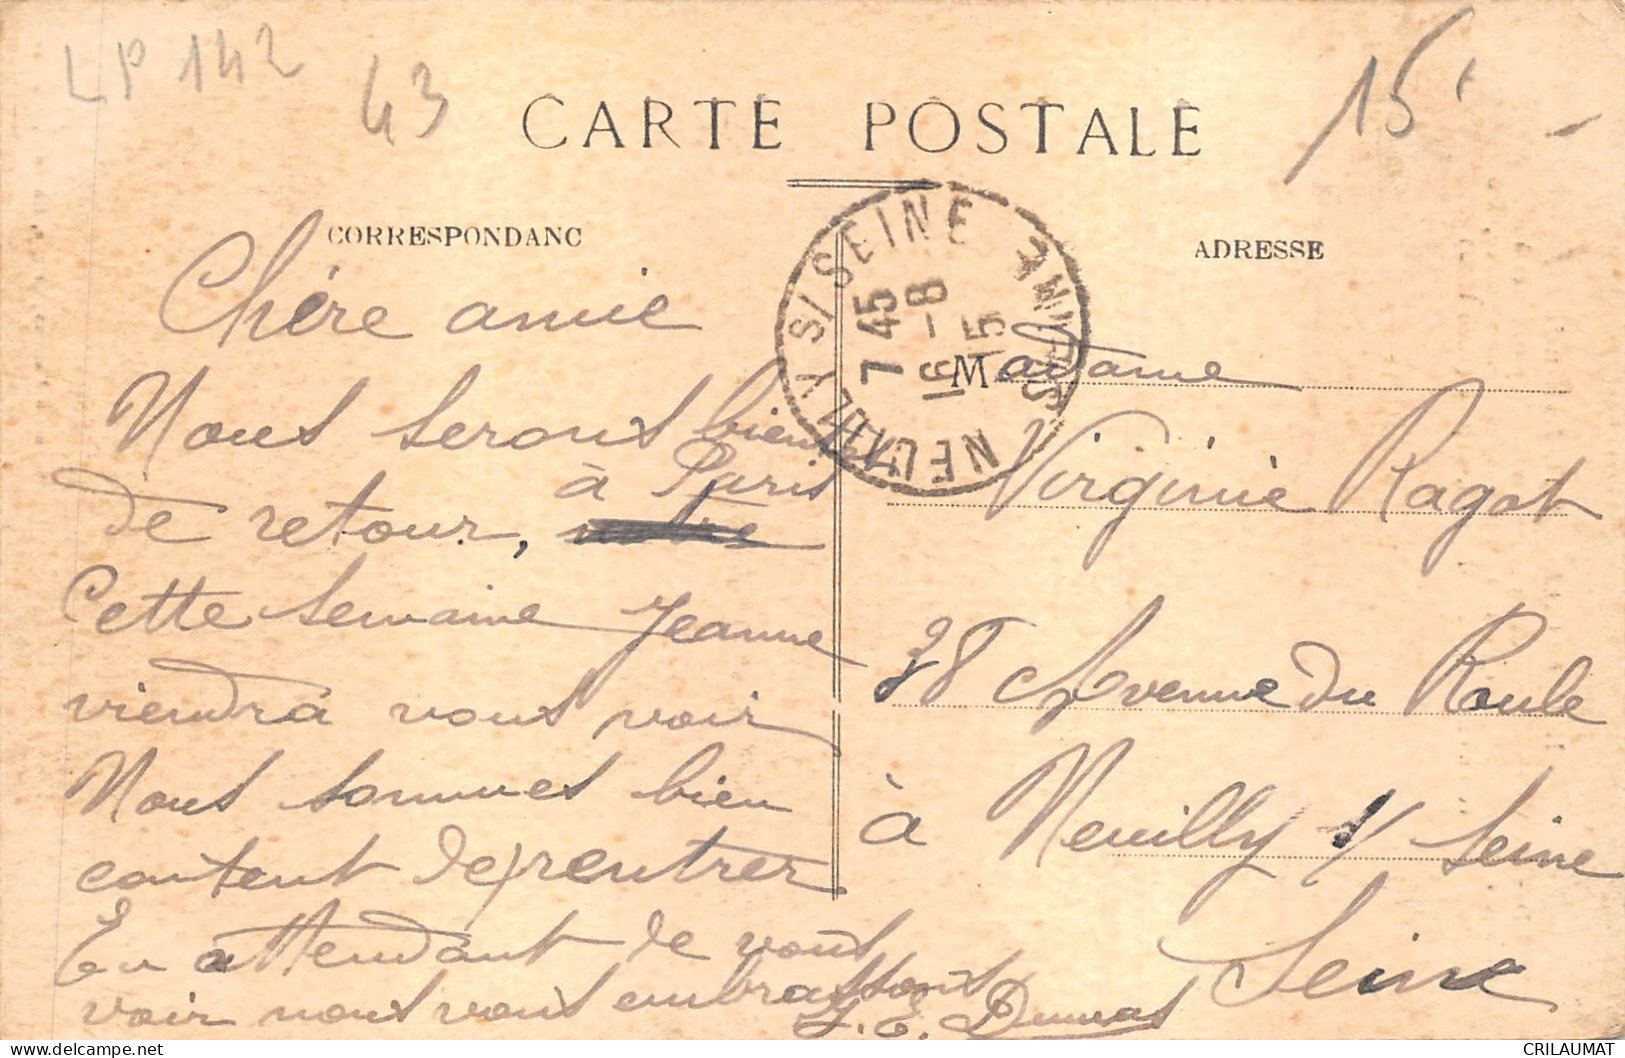 LP 142
43
15
CARTE POSTALE
CORRESPONDANC
ADRESSE
NEUILLY S/ SEINE
7 45
16 - 8
15
SEINE
Chère amie
Nous serons bientôt
de retour, à Paris
Cette semaine Jeanne
viendra vous voir
Nous sommes bien
content de rentrer
En attendant de vous
voir nous vous embrassons
J. E. Dumas
Madame
Virginie Ragot
38 Avenue du Roule
à Neuilly s/ Seine
Seine
CRILAUMAT